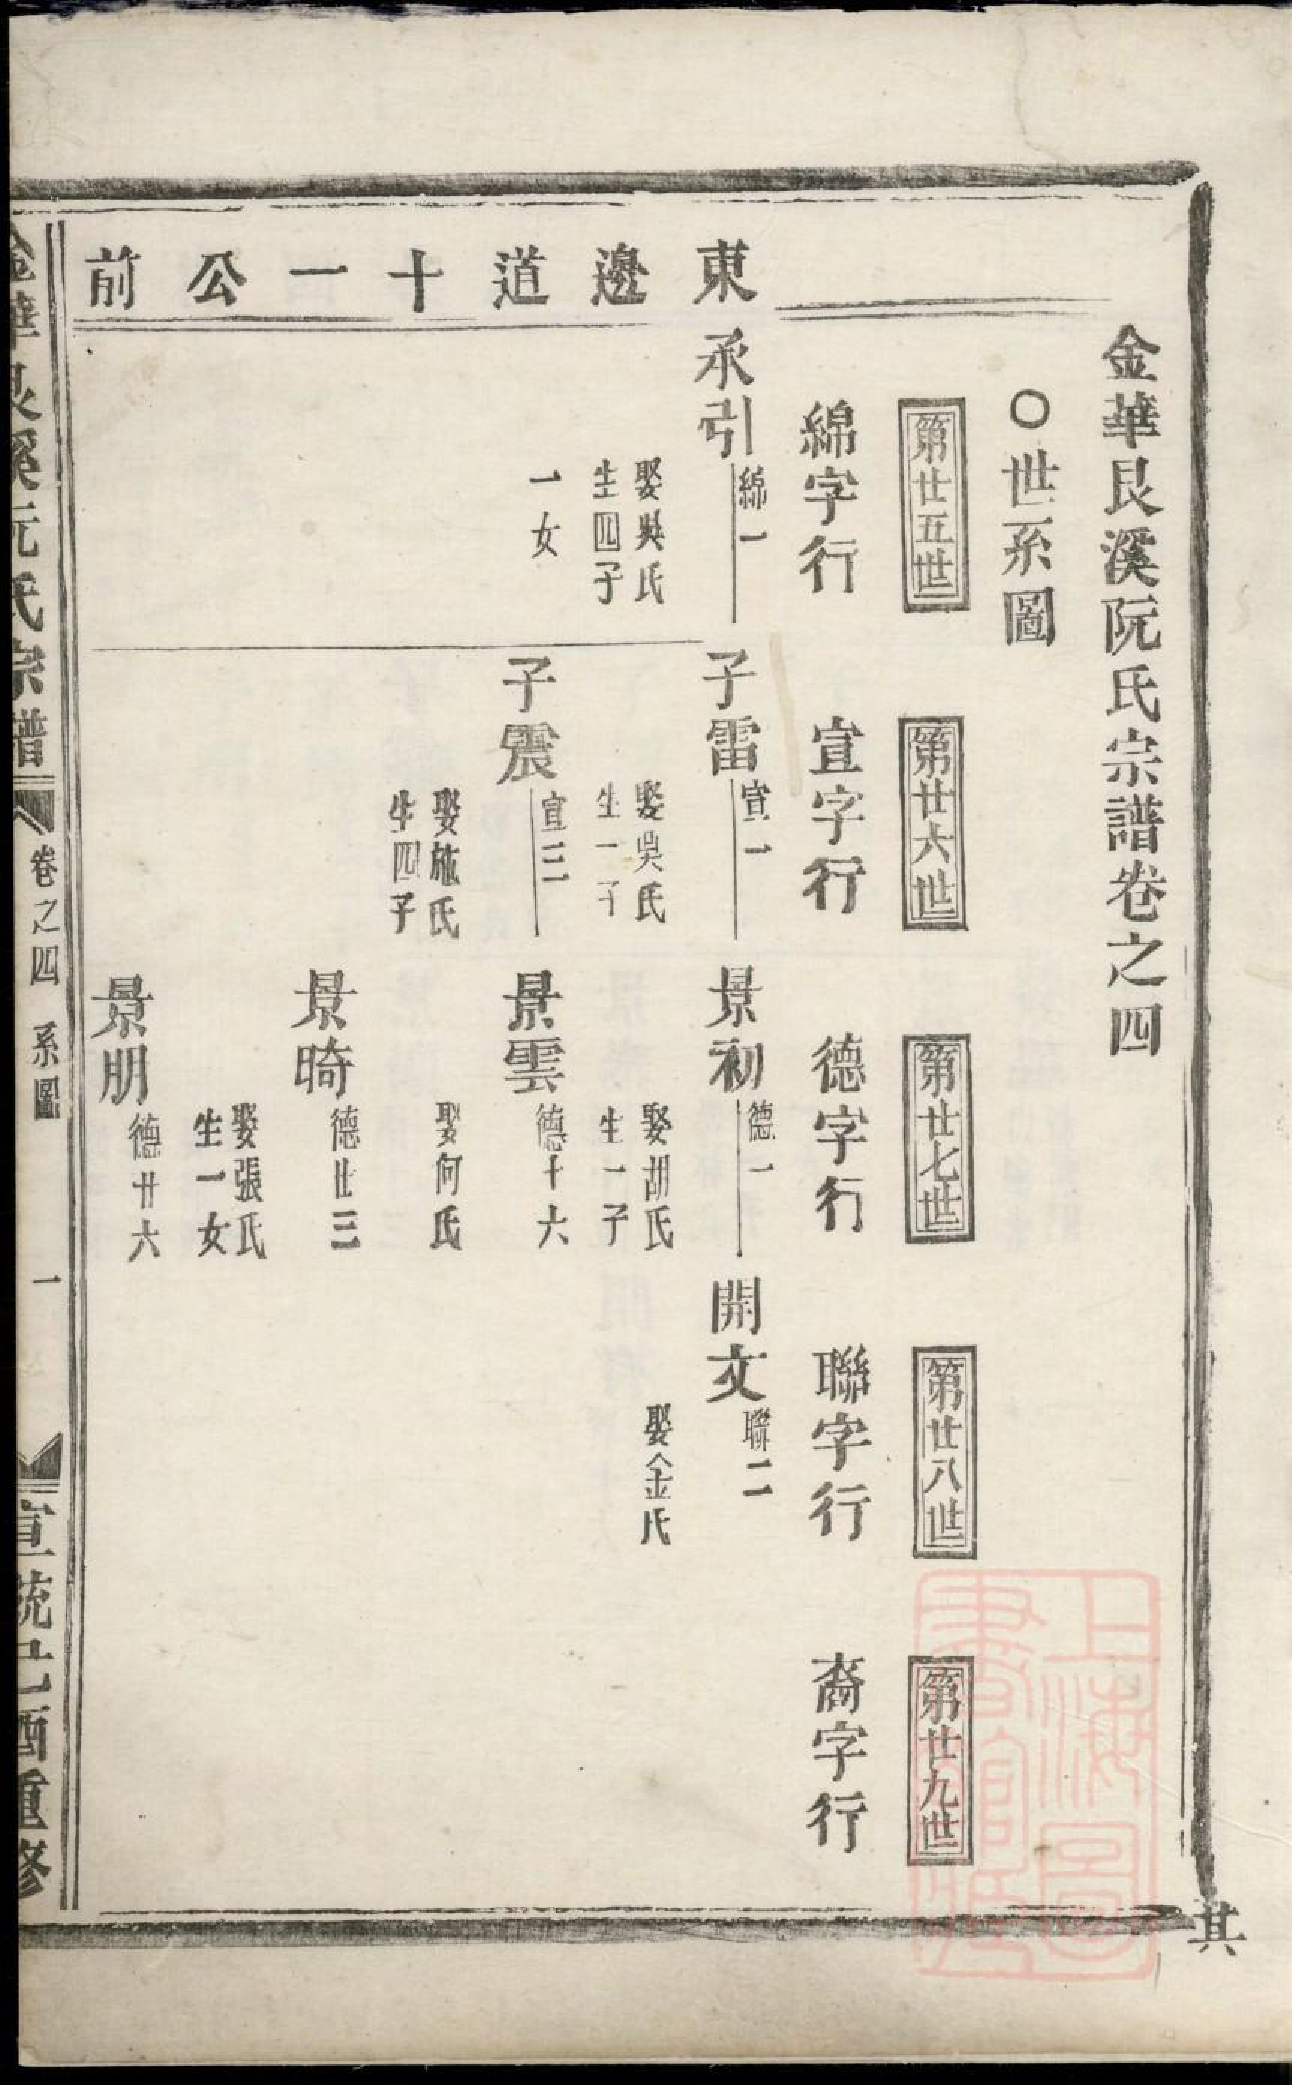 金華艮溪阮氏宗譜卷之四
○世系圖
第廿五世
第廿六世
第廿七世
第廿八世
第廿九世
綿字行
宣字行
德字行
聯字行
裔字行
東邊道十一公前
承引
綿一
娶吳氏
生四子
一女
子雷
宣一
娶吳氏
生一子
景初
德一
娶胡氏
生一子
開文
聯二
娶金氏
子震
宣三
娶施氏
生四子
景雲
德十六
娶何氏
景暔
德廿三
娶張氏
生一女
景朋
德廿六
金華艮溪阮氏宗譜
卷之四 系圖
一
宣統己酉重修
其
上海圖
書館藏